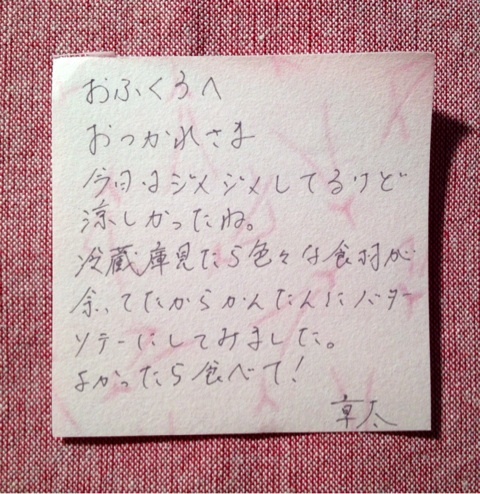 おふくろへ
おつかれさま
今日はジメジメしてるけど
涼しかったね。
冷蔵庫見たら色々な食材が
余ってたからかんたんにバター
ソテーにしてみました。
よかったら食べて!
草太